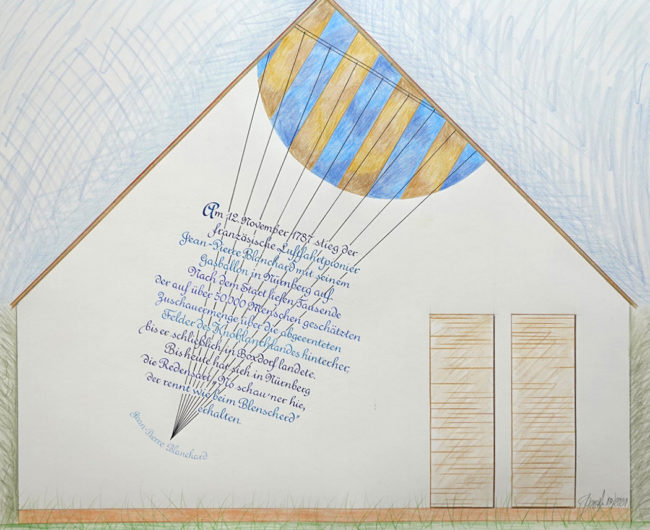 Am 12. November 1787 stieg der
französische Luftfahrtpionier
Jean-Pierre Blanchard mit seinem
Gasballon in Nürnberg auf.
Nach dem Start liefen Tausende
der auf über 50.000 Menschen geschätzten
Zuschauermenge über die abgeernteten
Felder des Knoblauchlandes hinterher,
bis er schließlich in Boxdorf landete.
Bis heute hat sich in Nürnberg
die Redensart „No schau'ner hie,
der rennt wie beim Blenscherd"
erhalten.
Jean-Pierre Blanchard